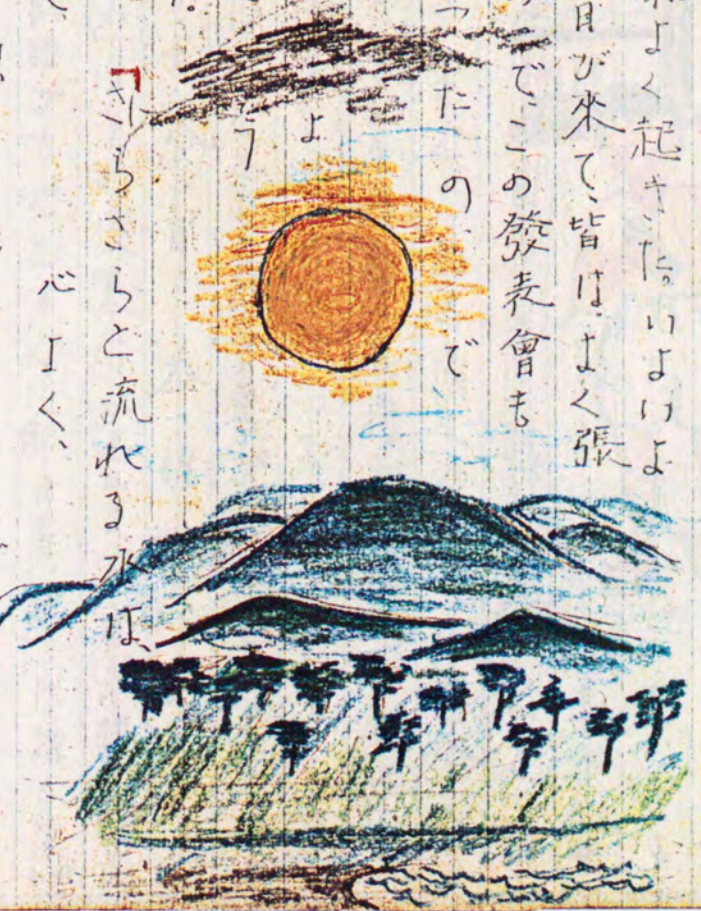 よく起きた。いよいよ
日が來て、皆は、よく張
で、この發表會も
つたの、で
よう
「さらさらと流れる水は、
心よく、